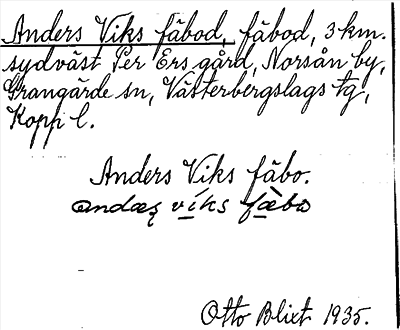 Anders Viks fäbod, fäbod, 3 km.
sydväst Per Ers gård, Norsån by,
Grangärde sn, Västerbergslags tg,
Kopp l.
Anders Viks fäbo.
andæʂ víks fæ̀bo
Otto Blixt 1935.